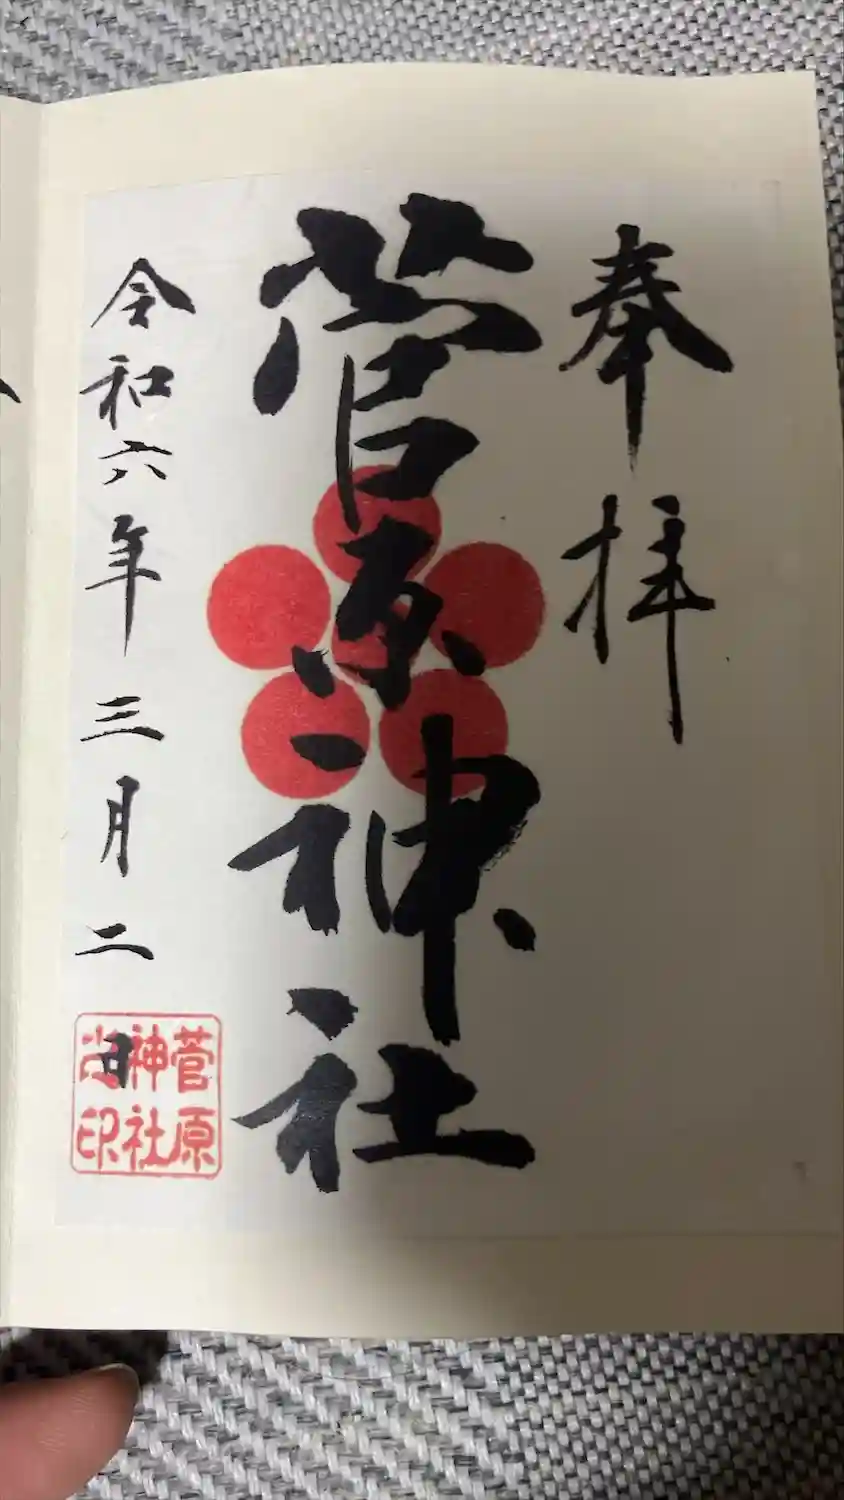 奉拝
菅原神社
令和六年三月二日
菅原
神社
之印